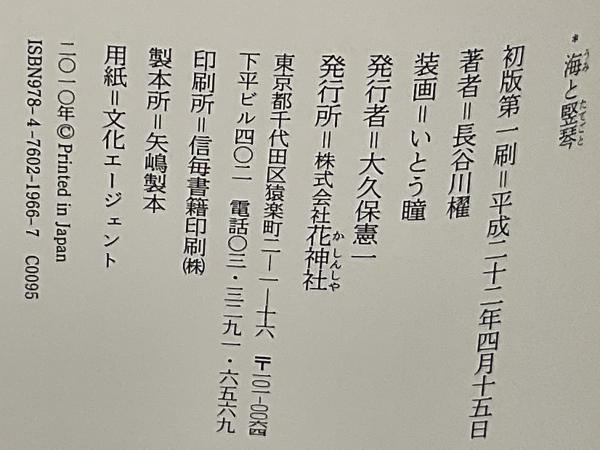 * 海と竪琴
うみ たてごと
初版第一刷＝平成二十二年四月十五日
著者＝長谷川櫂
装画＝いとう瞳
発行者＝大久保憲一
発行所＝株式会社花神社
かしんしや
東京都千代田区猿楽町二―一―十六 〒一〇一-〇〇六四
下平ビル四〇二 電話〇三・三二九一・六五六九
印刷所＝信毎書籍印刷㈱
製本所＝矢嶋製本
用紙＝文化エージェント
二〇一〇年 © Printed in Japan
ISBN978-4-7602-1966-7 C0095